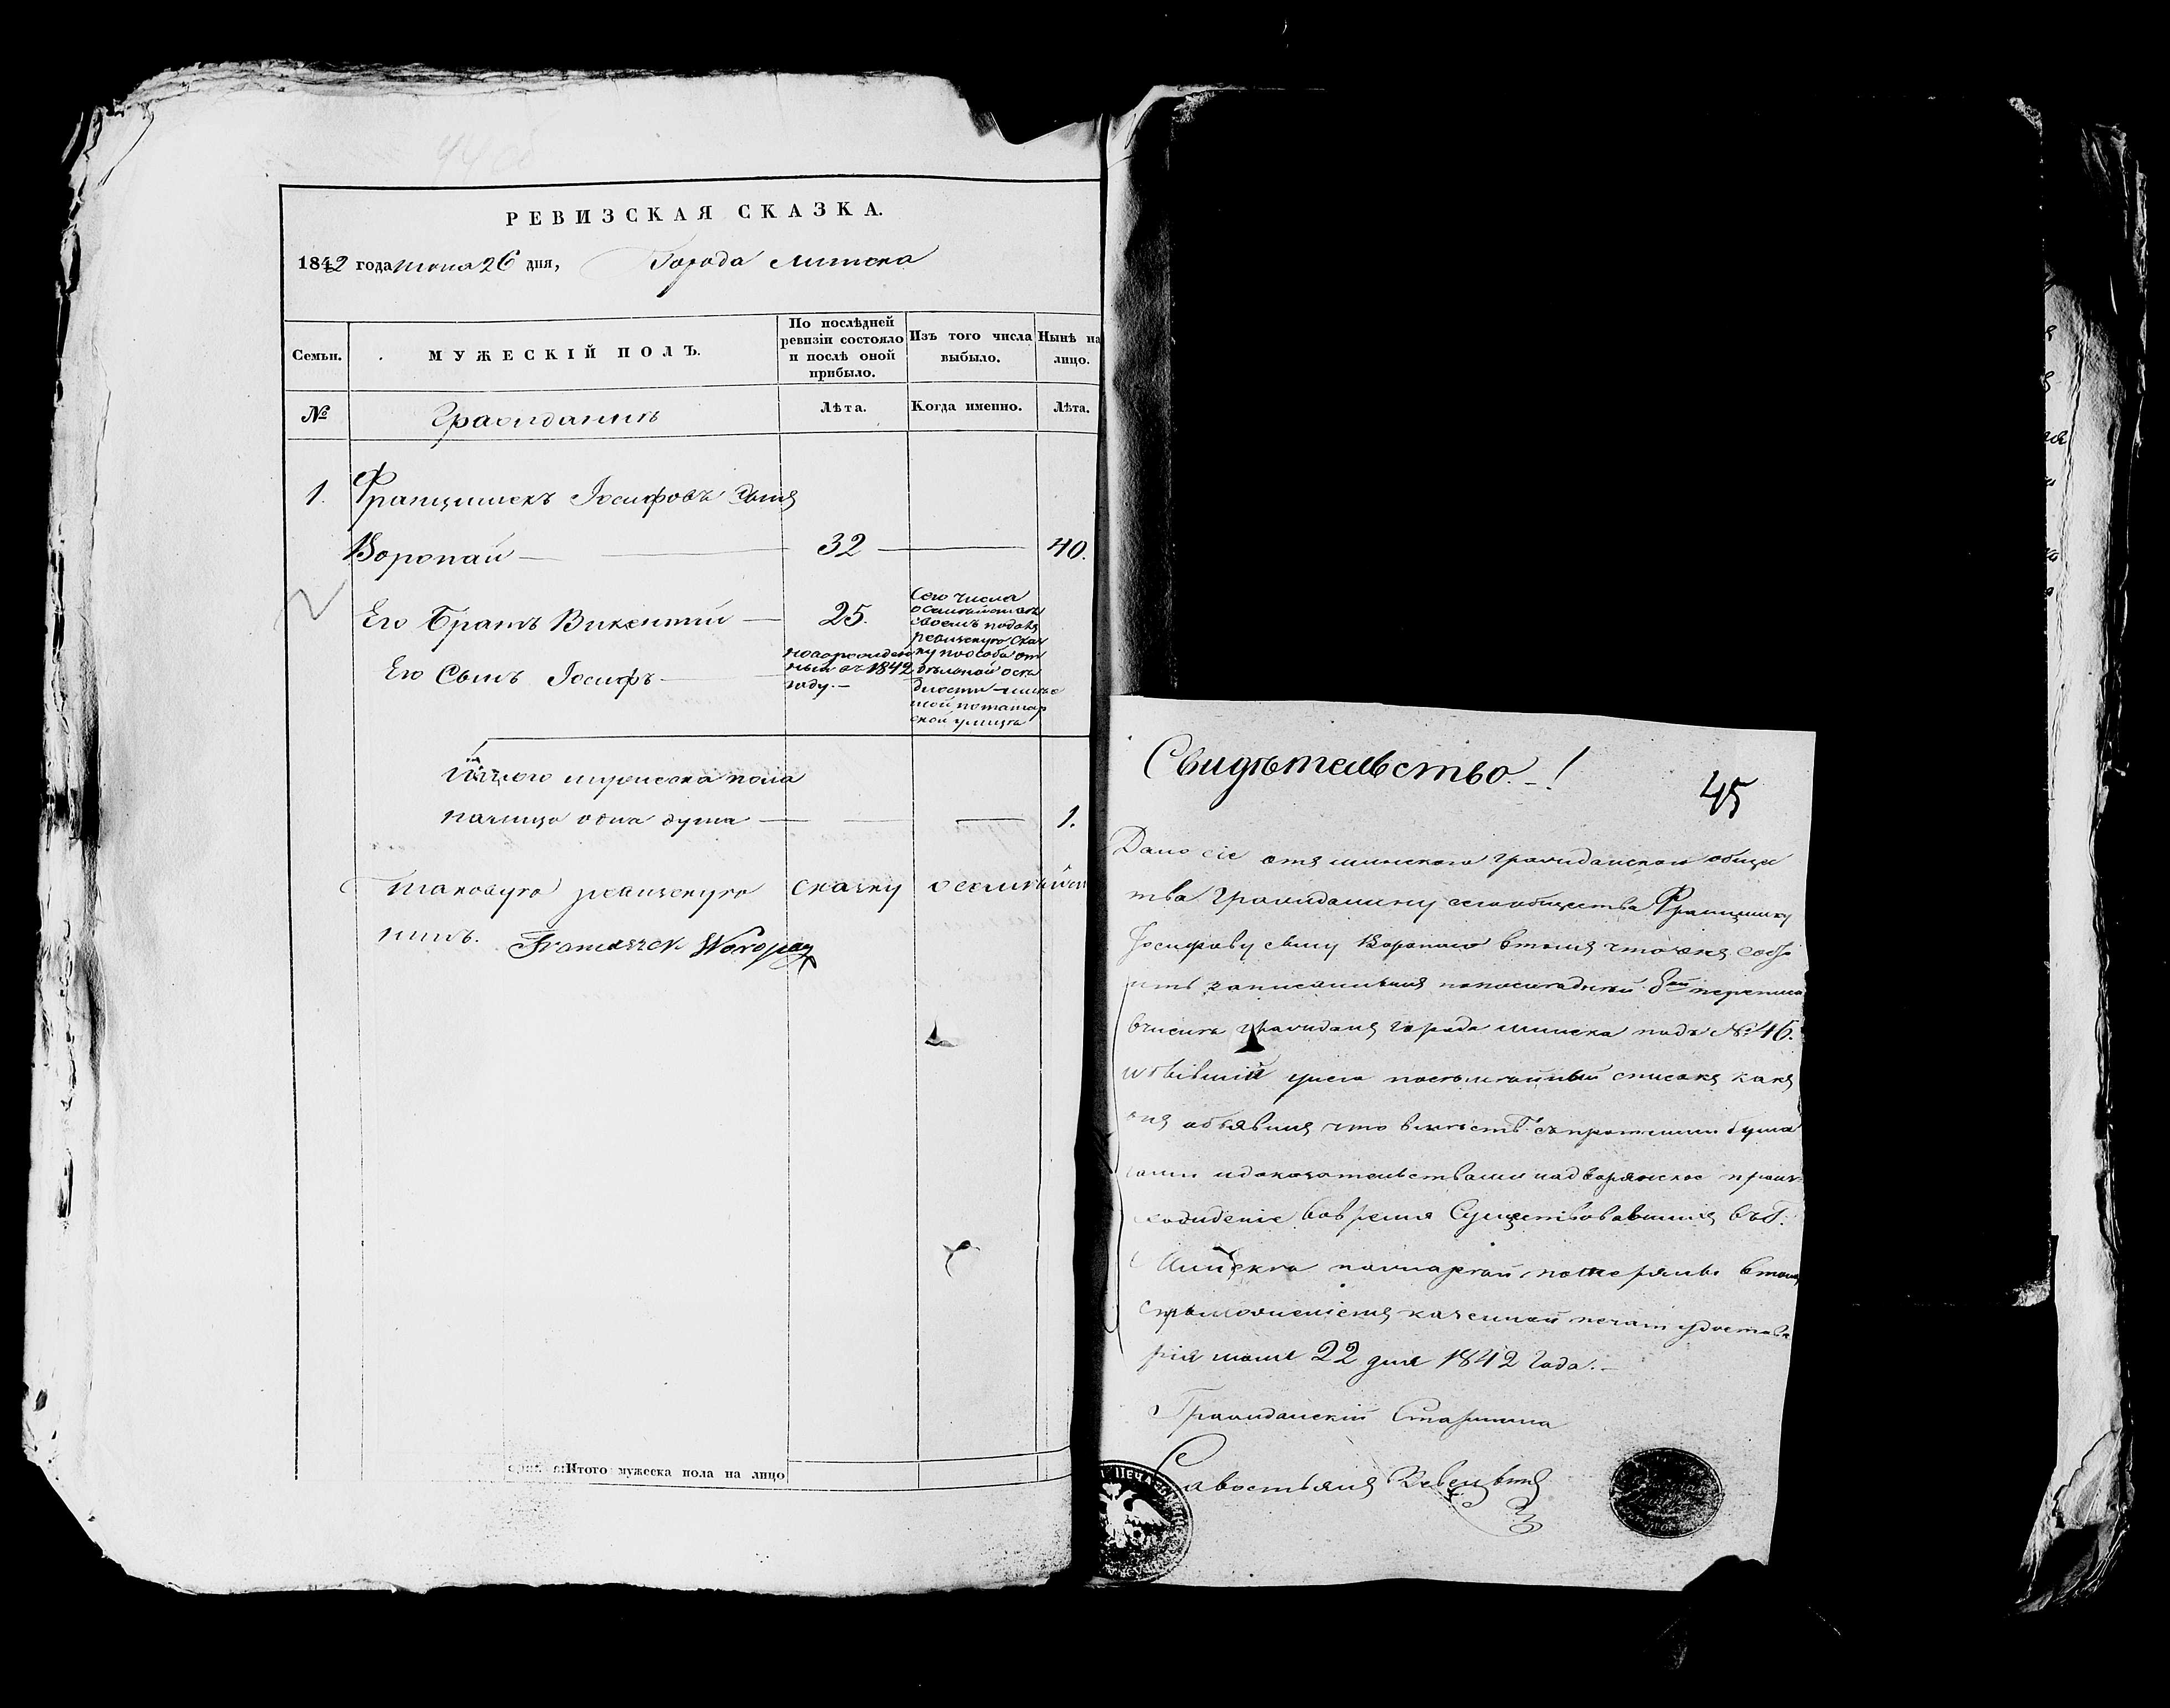 44 об
РЕВИЗСКАЯ СКАЗКА.
1842 года июня 26 дня, Города Минска
Семьи.
МУЖЕСКІЙ ПОЛЪ.
По послѣдней ревизіи состояло и послѣ оной прибыло.
Изъ того числа выбыло.
Нынѣ на лицо.
№
Гражданинъ
Лѣта.
Когда именно.
Лѣта.
1. Францишекъ Іосифовъ Сынъ
Воропай 32 40.
Его Братъ Викентій 25.
Его Сынъ Іосифъ
новорожден
ный въ 1842
году.
сего числа
о семействѣ
своемъ подалъ
ревизскую Сказ
ку по особой от
дѣльной осѣ
длости
улицѣ
Итого мужеска пола
на лицо одна душа 1.
таковую ревизскую сказку о семейст
Franciszek Woropay
Итого мужеска пола на лицо
Свидѣтельство. !
45
Дано сіе отъ минскаго гражданскаго общес
тва Гражданину сего общества Францишку
Іосифову сыну Воропаю втомъ что онъ
записанный по послѣдней 8ой переписи
вчислѣ гражданъ города минска подъ № 46.
посемейный списокъ какъ
онъ объявилъ что вмѣстѣ съ протчими бума
гами идоказательствами на дворянское проис
хожденіе вовремя Существовавшихъ въ Г.
Минска потеряны втомъ
съприложеніемъ казенной печати удостове
ряя июня 22 дня 1842 Года.
Гражданскій Старшина